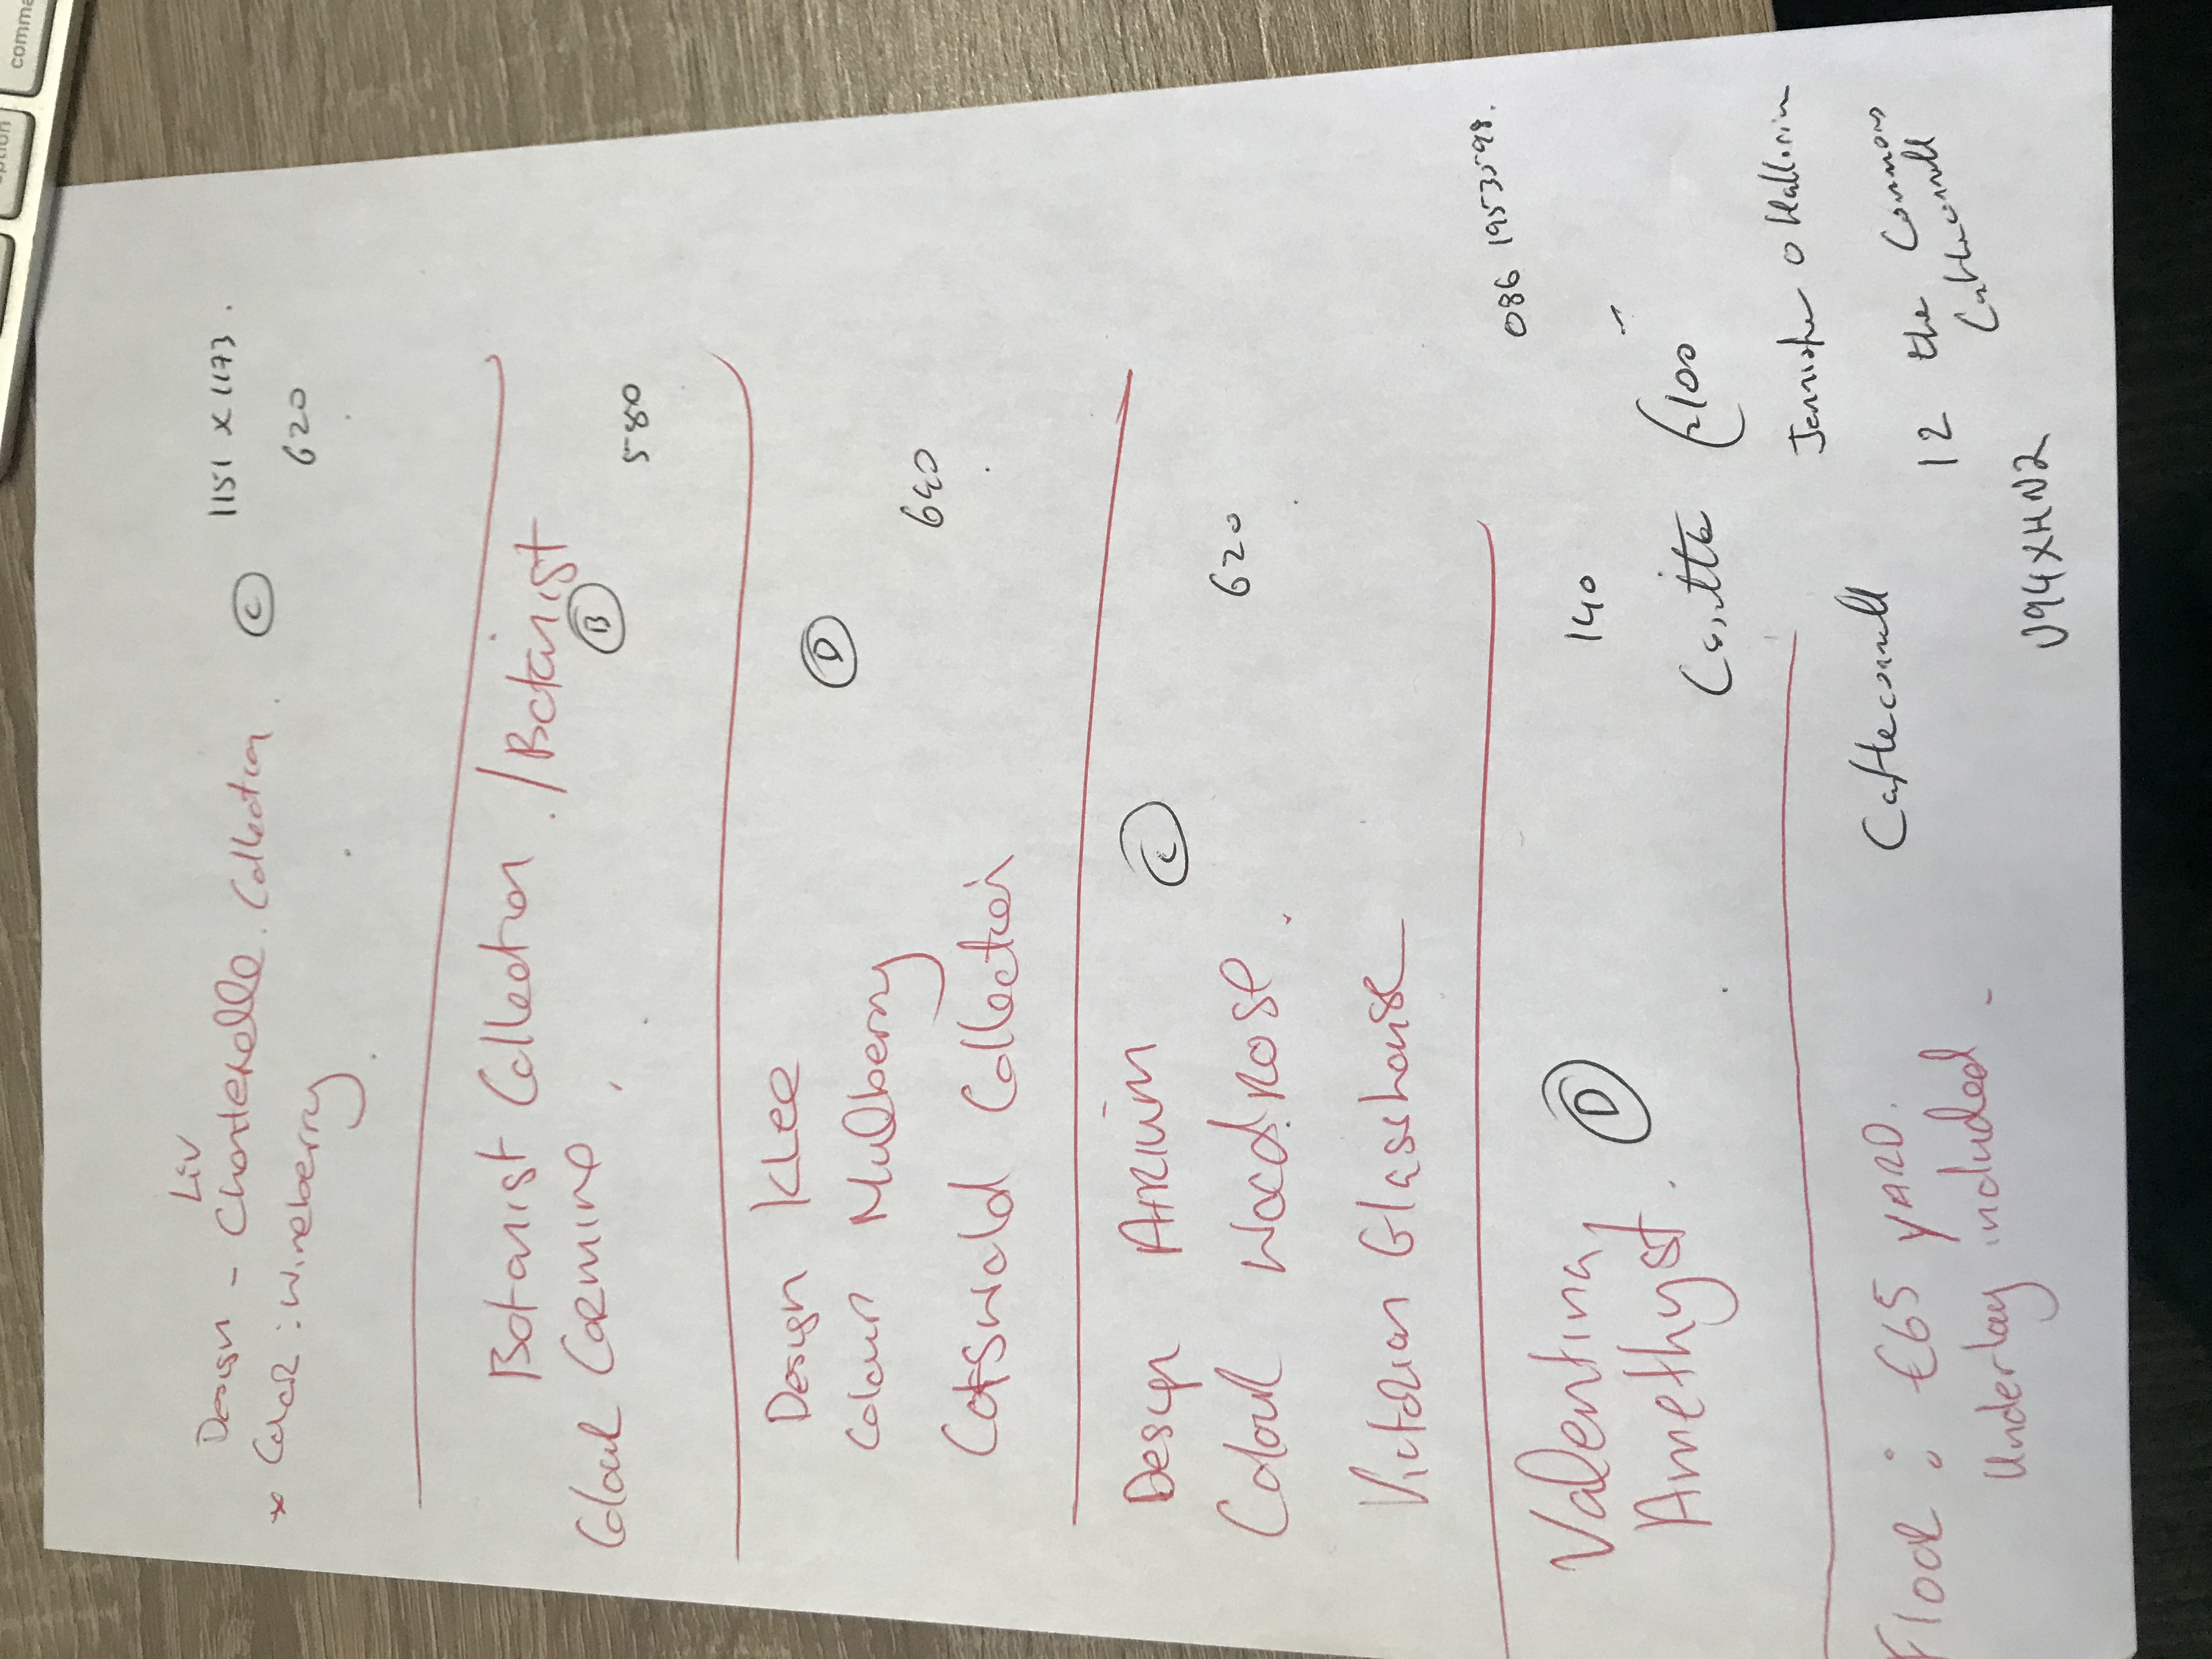 Liv
Design - Chanterelle. Collection. C 1151 x 1173.
* Color: wineberry. 620
Botanist Collection. / Botanist
Colour Carmine, B 580
Design KLee D
Colour Mulberry 640
Cotswold Collection
Design ARIUM C
Colour Woodrose. 620
Victorian Glasshouse
086 1953598.
Valentina, D 140
Amethyst. €100
Jennifer o Halloran
Floor: €65 YARD. Castleconnell 12 the Commons
Underlay included - Castleconnell
V94XHN2
comma
option